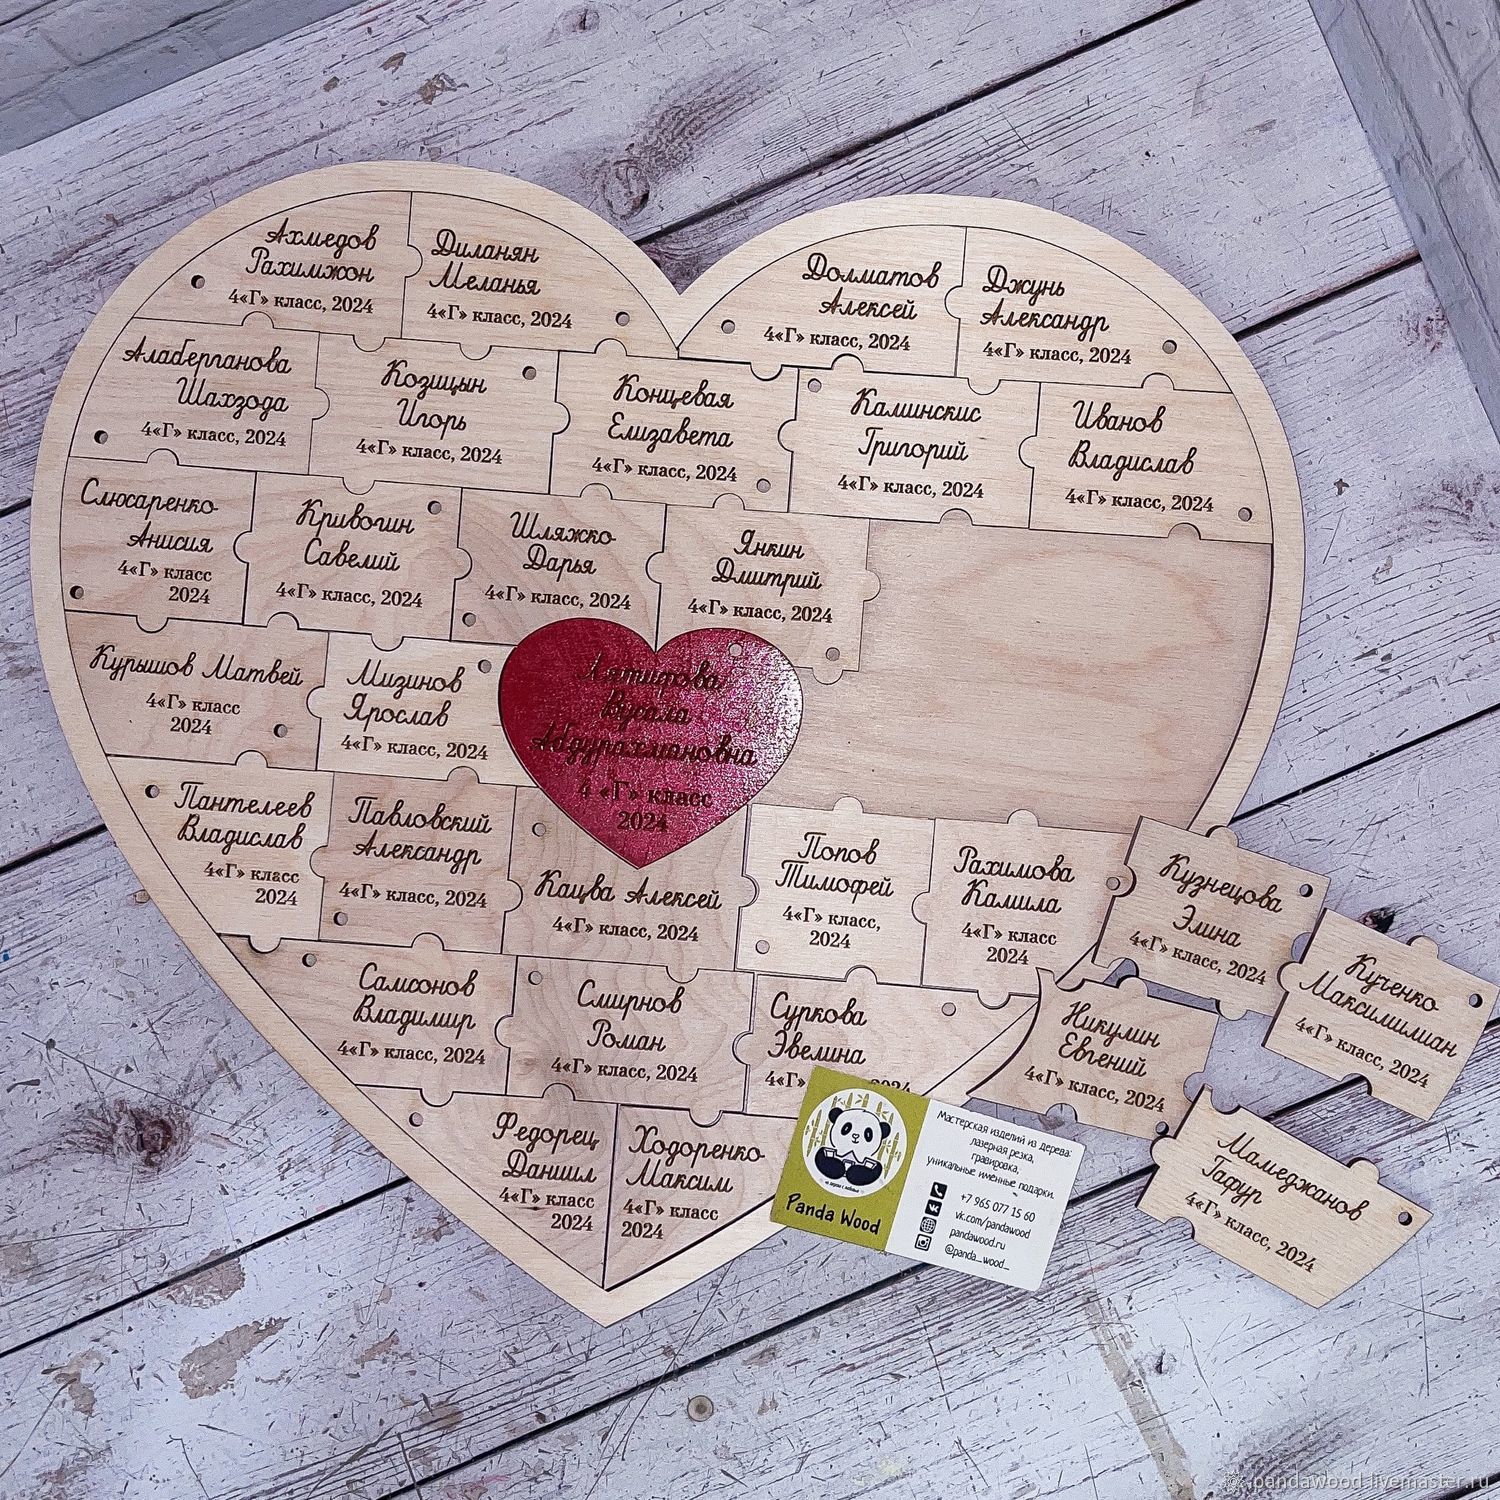 Ахмедов
Рахимжон
4«Г» класс, 2024
Диланян
Меланья
4«Г» класс, 2024
Долматов
Алексей
4«Г» класс, 2024
Джунь
Александр
4«Г» класс, 2024
Алаберганова
Шахзода
4«Г» класс, 2024
Козицын
Игорь
4«Г» класс, 2024
Концевая
Елизавета
4«Г» класс, 2024
Каминскис
Григорий
4«Г» класс, 2024
Иванов
Владислав
4«Г» класс, 2024
Слюсаренко
Анисия
4«Г» класс
2024
Кривогин
Савелий
4«Г» класс, 2024
Шляжко
Дарья
4«Г» класс, 2024
Янкин
Дмитрий
4«Г» класс, 2024
Курышов Матвей
4«Г» класс
2024
Мизинов
Ярослав
4«Г» класс, 2024
Лятифова
Вусала
Абдурахмановна
4 «Г» класс
2024
Пантелеев
Владислав
4«Г» класс
2024
Павловский
Александр
4«Г» класс, 2024
Кацва Алексей
4«Г» класс, 2024
Попов
Тимофей
4«Г» класс,
2024
Рахимова
Камила
4«Г» класс
2024
Кузнецова
Элина
4«Г» класс, 2024
Кученко
Максимилиан
4«Г» класс, 2024
Самсонов
Владимир
4«Г» класс, 2024
Смирнов
Роман
4«Г» класс, 2024
Суркова
Эвелина
4«Г» 2024
Никулин
Евгений
4«Г» класс, 2024
Мамеджанов
Гафур
4«Г» класс, 2024
Федорец
Даниил
4«Г» класс
2024
Ходоренко
Максим
4«Г» класс
2024
Panda Wood
Мастерская изделий из дерева:
лазерная резка,
гравировка,
уникальные именные подарки.
+7 965 077 15 60
vk.com/pandawood
pandawood.ru
@panda_wood_
pandawood.livemaster.ru